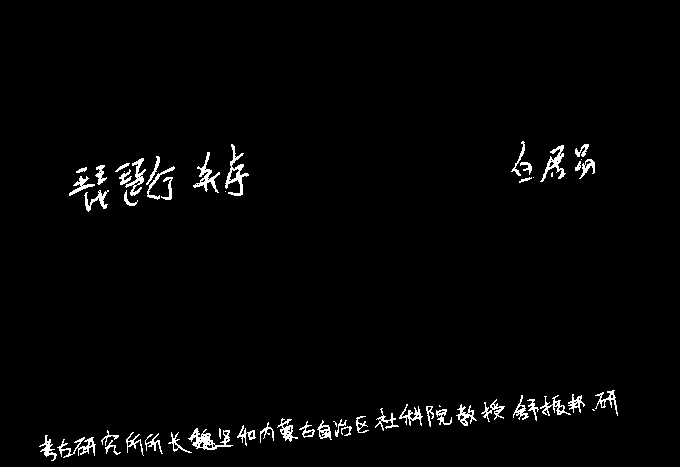 琵琶行 并序 白居易
考古研究所所长魏坚和内蒙古自治区社科院教授舒振邦、研